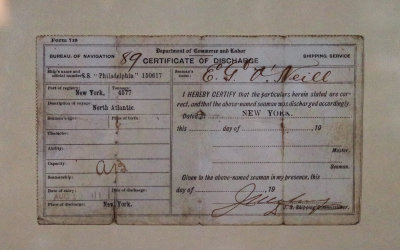 Form 719
Department of Commerce and Labor
BUREAU OF NAVIGATION
89
CERTIFICATE OF DISCHARGE
SHIPPING SERVICE
Ship's name and official number:
S.S. "Philadelphia" 150617
Seaman's name:
E. G. O'Neill
Port of registry:
Tonnage:
New York,
4077
Description of voyage:
North Atlantic.
Seaman's age:
Place of birth:
Character:
Ability:
Capacity:
AB
Seamanship:
Date of entry:
Date of discharge:
AUG
Place of discharge:
New York.
I HEREBY CERTIFY that the particulars herein stated are cor-
rect, and that the above-named seaman was discharged accordingly
Dated
NEW YORK.
this
day of
, 19
Master.
Seaman.
Given to the above-named seaman in my presence, this
day of
, 19
U. S. Shipping Commissioner.